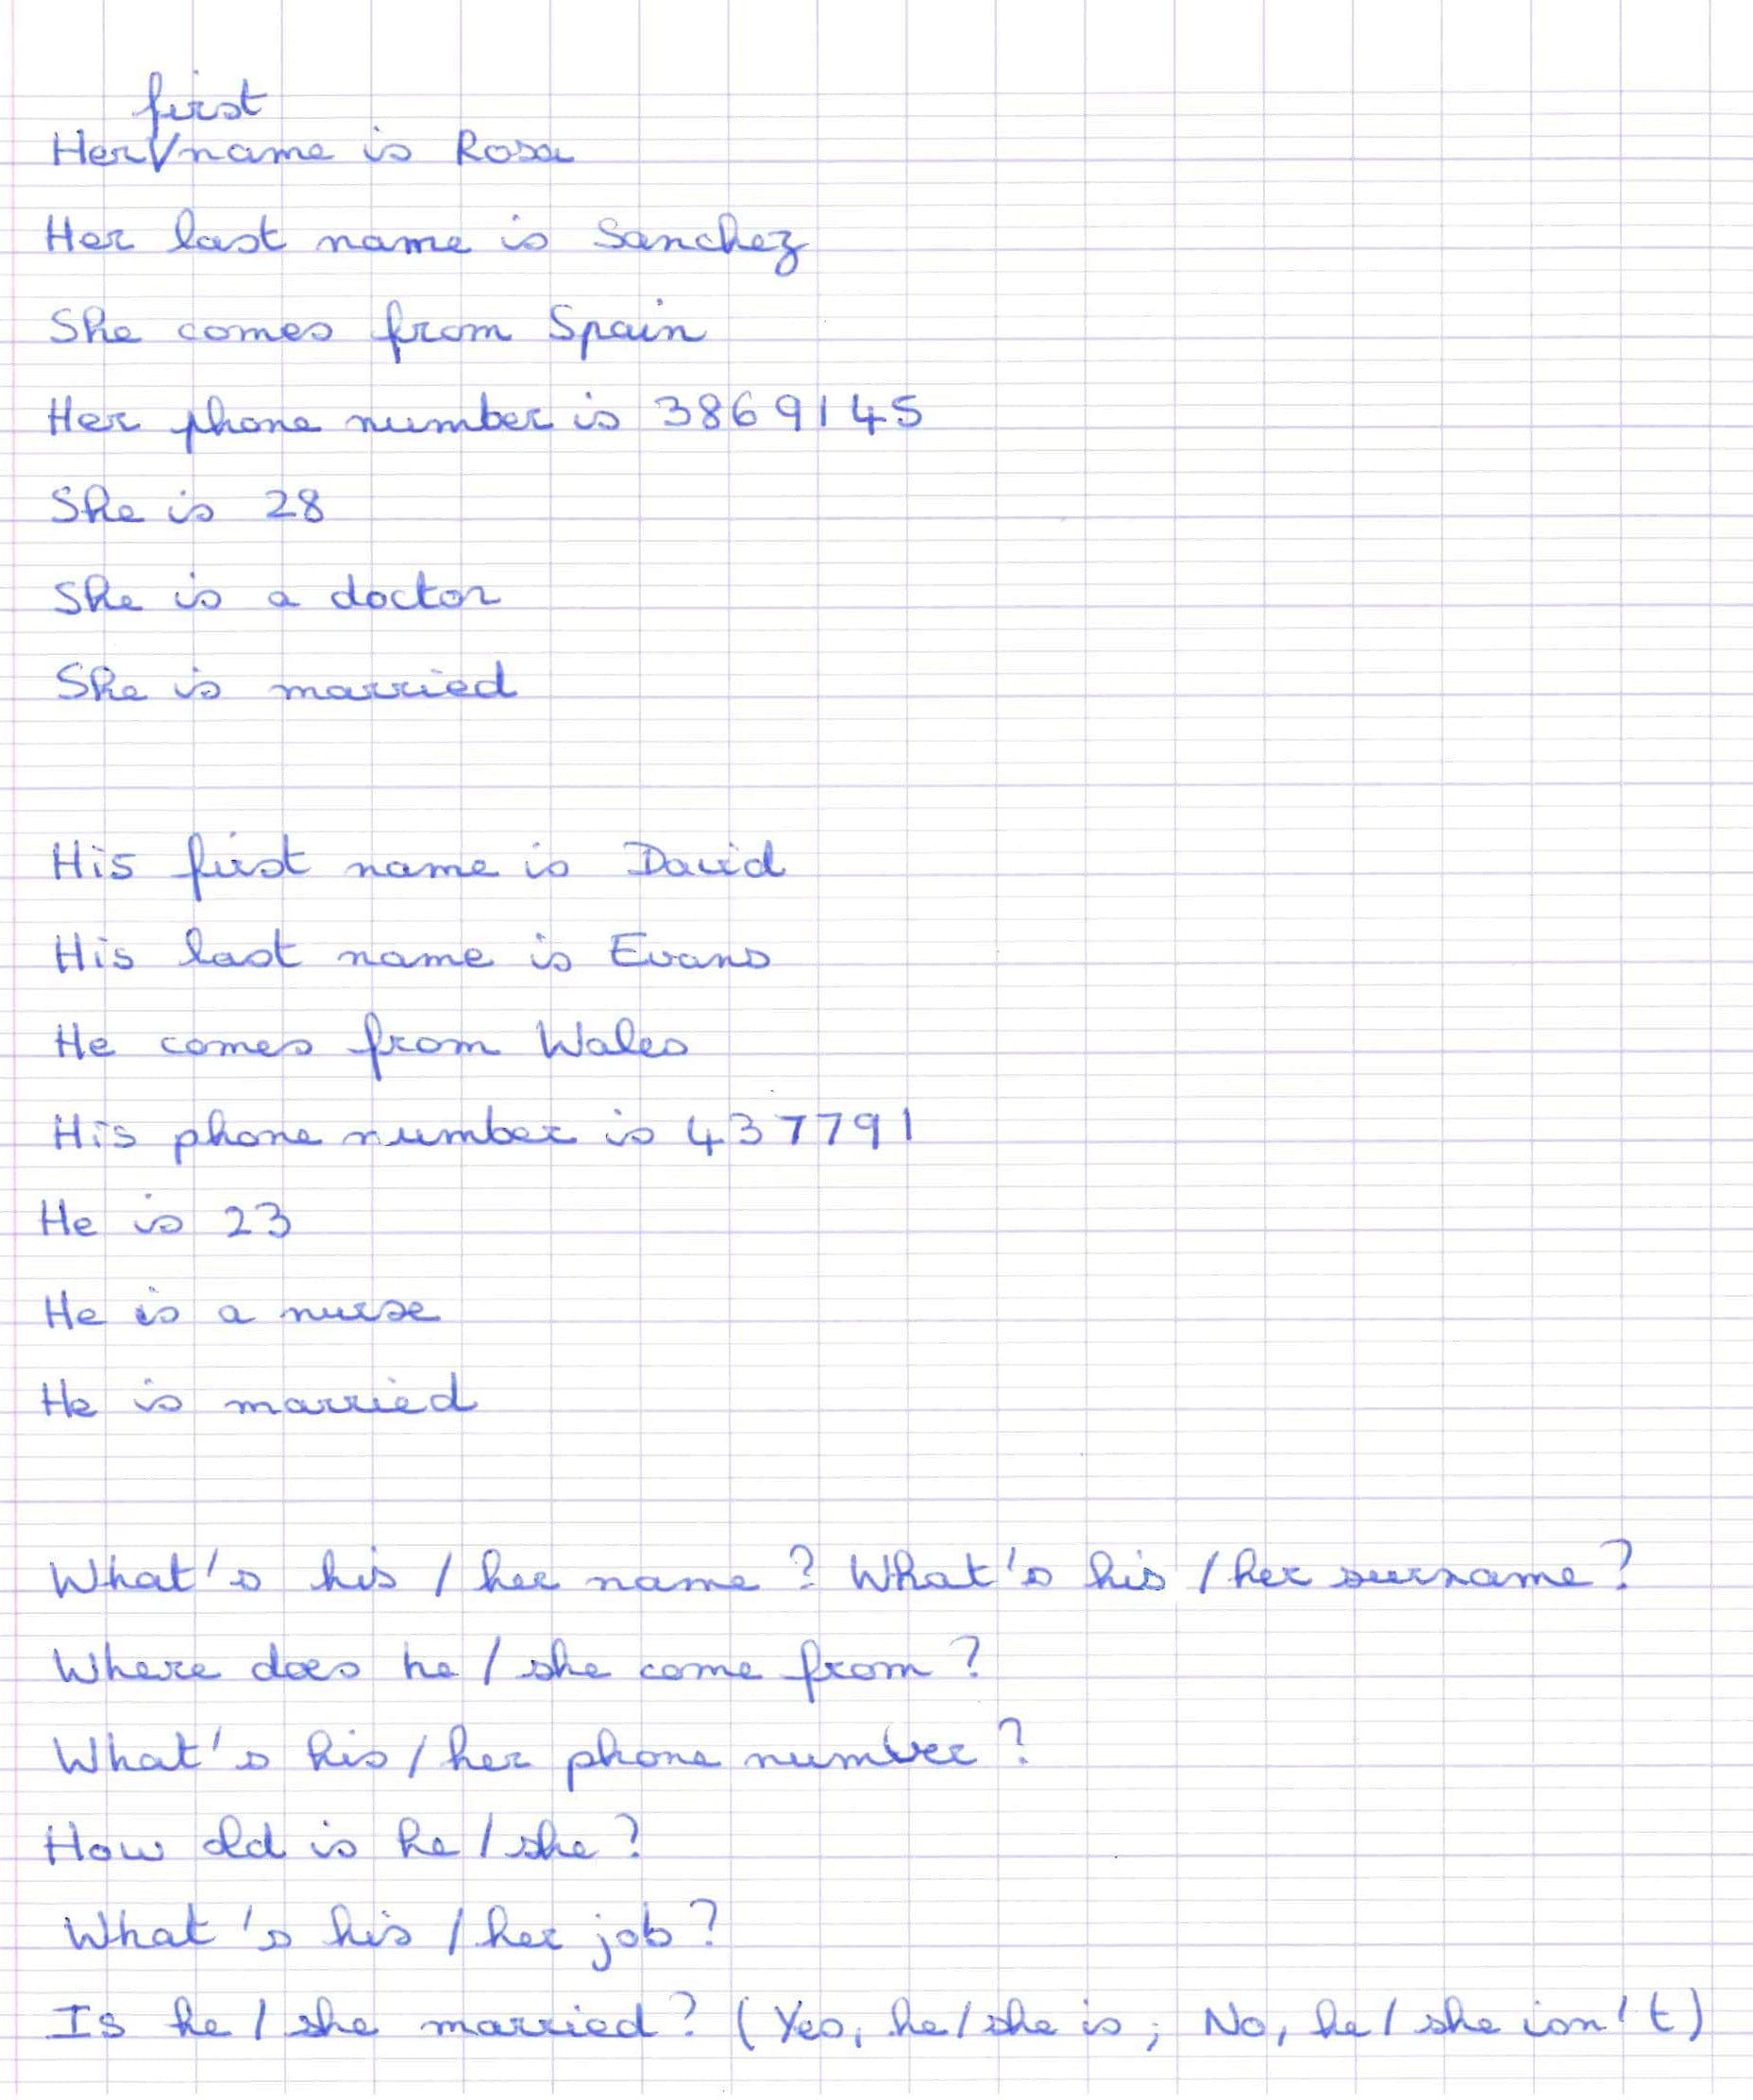 first
Her name is Rosa
Her last name is Sanchez
She comes from Spain
Her phone number is 3869145
She is 28
She is a doctor
She is married
His first name is David
His last name is Evans
He comes from Wales
His phone number is 437791
He is 23
He is a nurse
He is married
What's his / her name ? What's his / her surname ?
Where does he / she come from ?
What's his / her phone number ?
How old is he / she ?
What's his / her job ?
Is he / she married ? (Yes, he / she is ; No, he / she isn't)